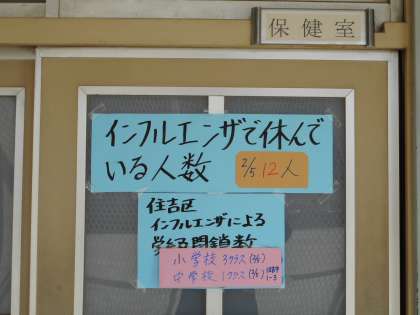 保健室
インフルエンザで休んで
いる人数 2/5 12人
住吉区
インフルエンザによる
学級閉鎖数
小学校 3クラス(2/5)
中学校 1クラス(2/5)